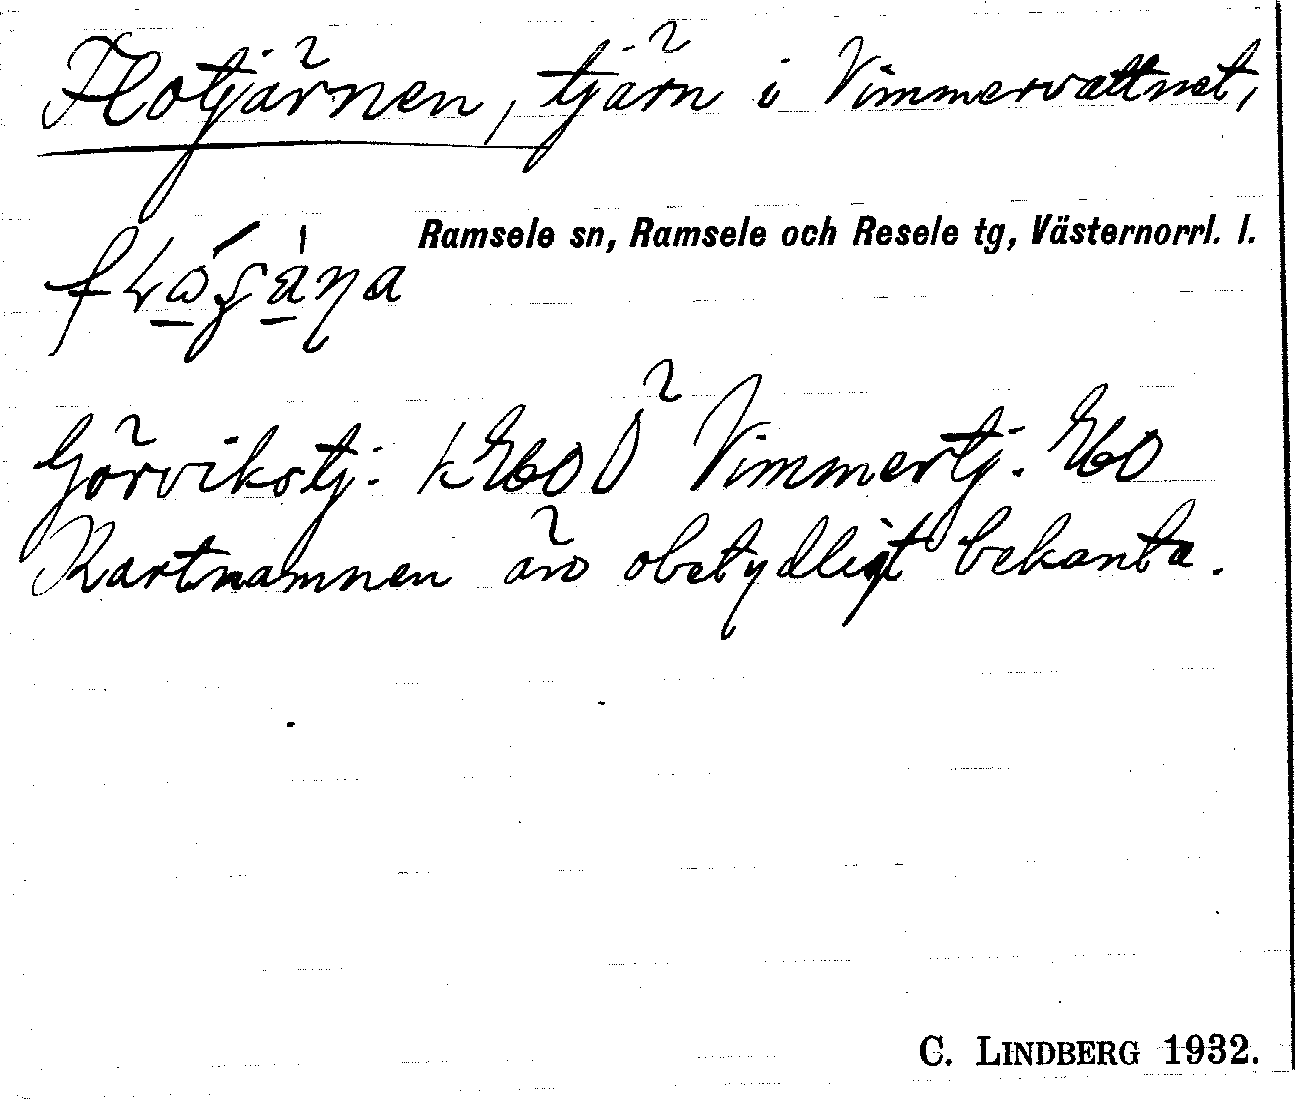 Flotjärnen, tjärn i Vimmervattnet,
Ramsele sn, Ramsele och Resele tg, Västernorrl. l.
Görvikstj. Vimmertj.
Kartnamnen äro obetydligt bekanta.
C. LINDBERG 1932.